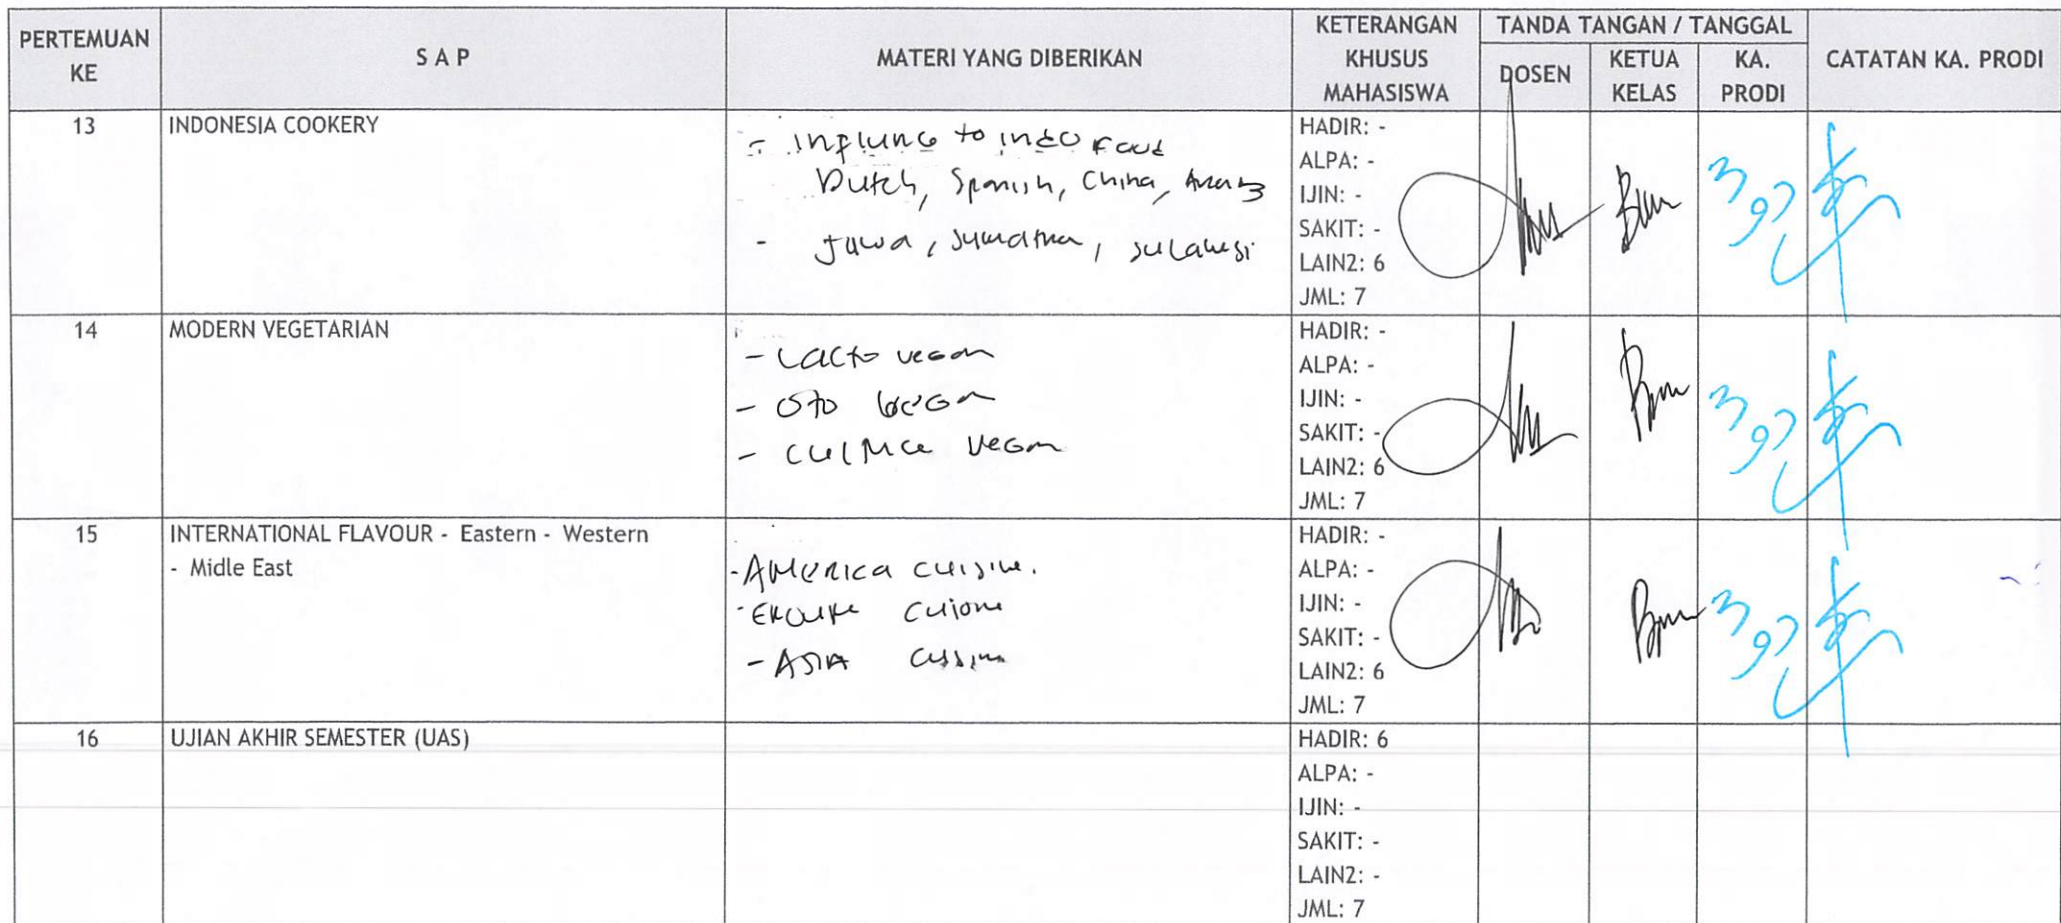 PERTEMUAN KE
S A P
MATERI YANG DIBERIKAN
KETERANGAN KHUSUS MAHASISWA
TANDA TANGAN / TANGGAL
DOSEN
KETUA KELAS
KA. PRODI
CATATAN KA. PRODI
13
INDONESIA COOKERY
- to indo
Dutch, Spanish, China,
- Jawa, Sumatra, Sulawesi
HADIR: -
ALPA: -
IJIN: -
SAKIT: -
LAIN2: 6
JML: 7
14
MODERN VEGETARIAN
- Lacto vegan
- vegan
- vegan
HADIR: -
ALPA: -
IJIN: -
SAKIT: -
LAIN2: 6
JML: 7
15
INTERNATIONAL FLAVOUR - Eastern - Western
- Midle East
- America cuisine.
-
- ASIA
HADIR: -
ALPA: -
IJIN: -
SAKIT: -
LAIN2: 6
JML: 7
16
UJIAN AKHIR SEMESTER (UAS)
HADIR: 6
ALPA: -
IJIN: -
SAKIT: -
LAIN2: -
JML: 7